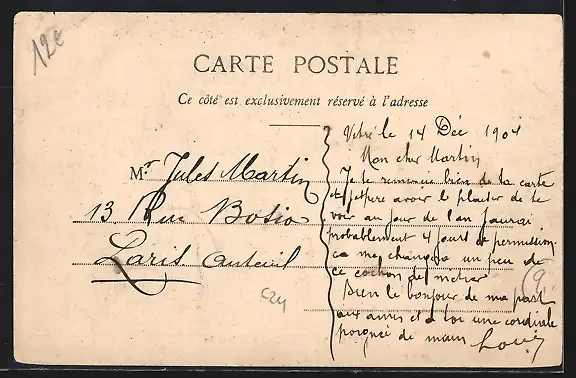 12e
CARTE POSTALE
Ce côté est exclusivement réservé à l'adresse
Mr Jules Martin
13 Rue Bosio
Paris Auteuil
Vitré le 14 Déc 1904
Mon cher Martin
Je te remercie bien de ta carte
et j'espère avoir le plaisir de te
voir au jour de l'an j'aurai
probablement 4 jours de permission
ça me changera un peu de
ce cochon de métier
Bien le bonjour de ma part
aux amis et à toi une cordiale
poignée de main Louis